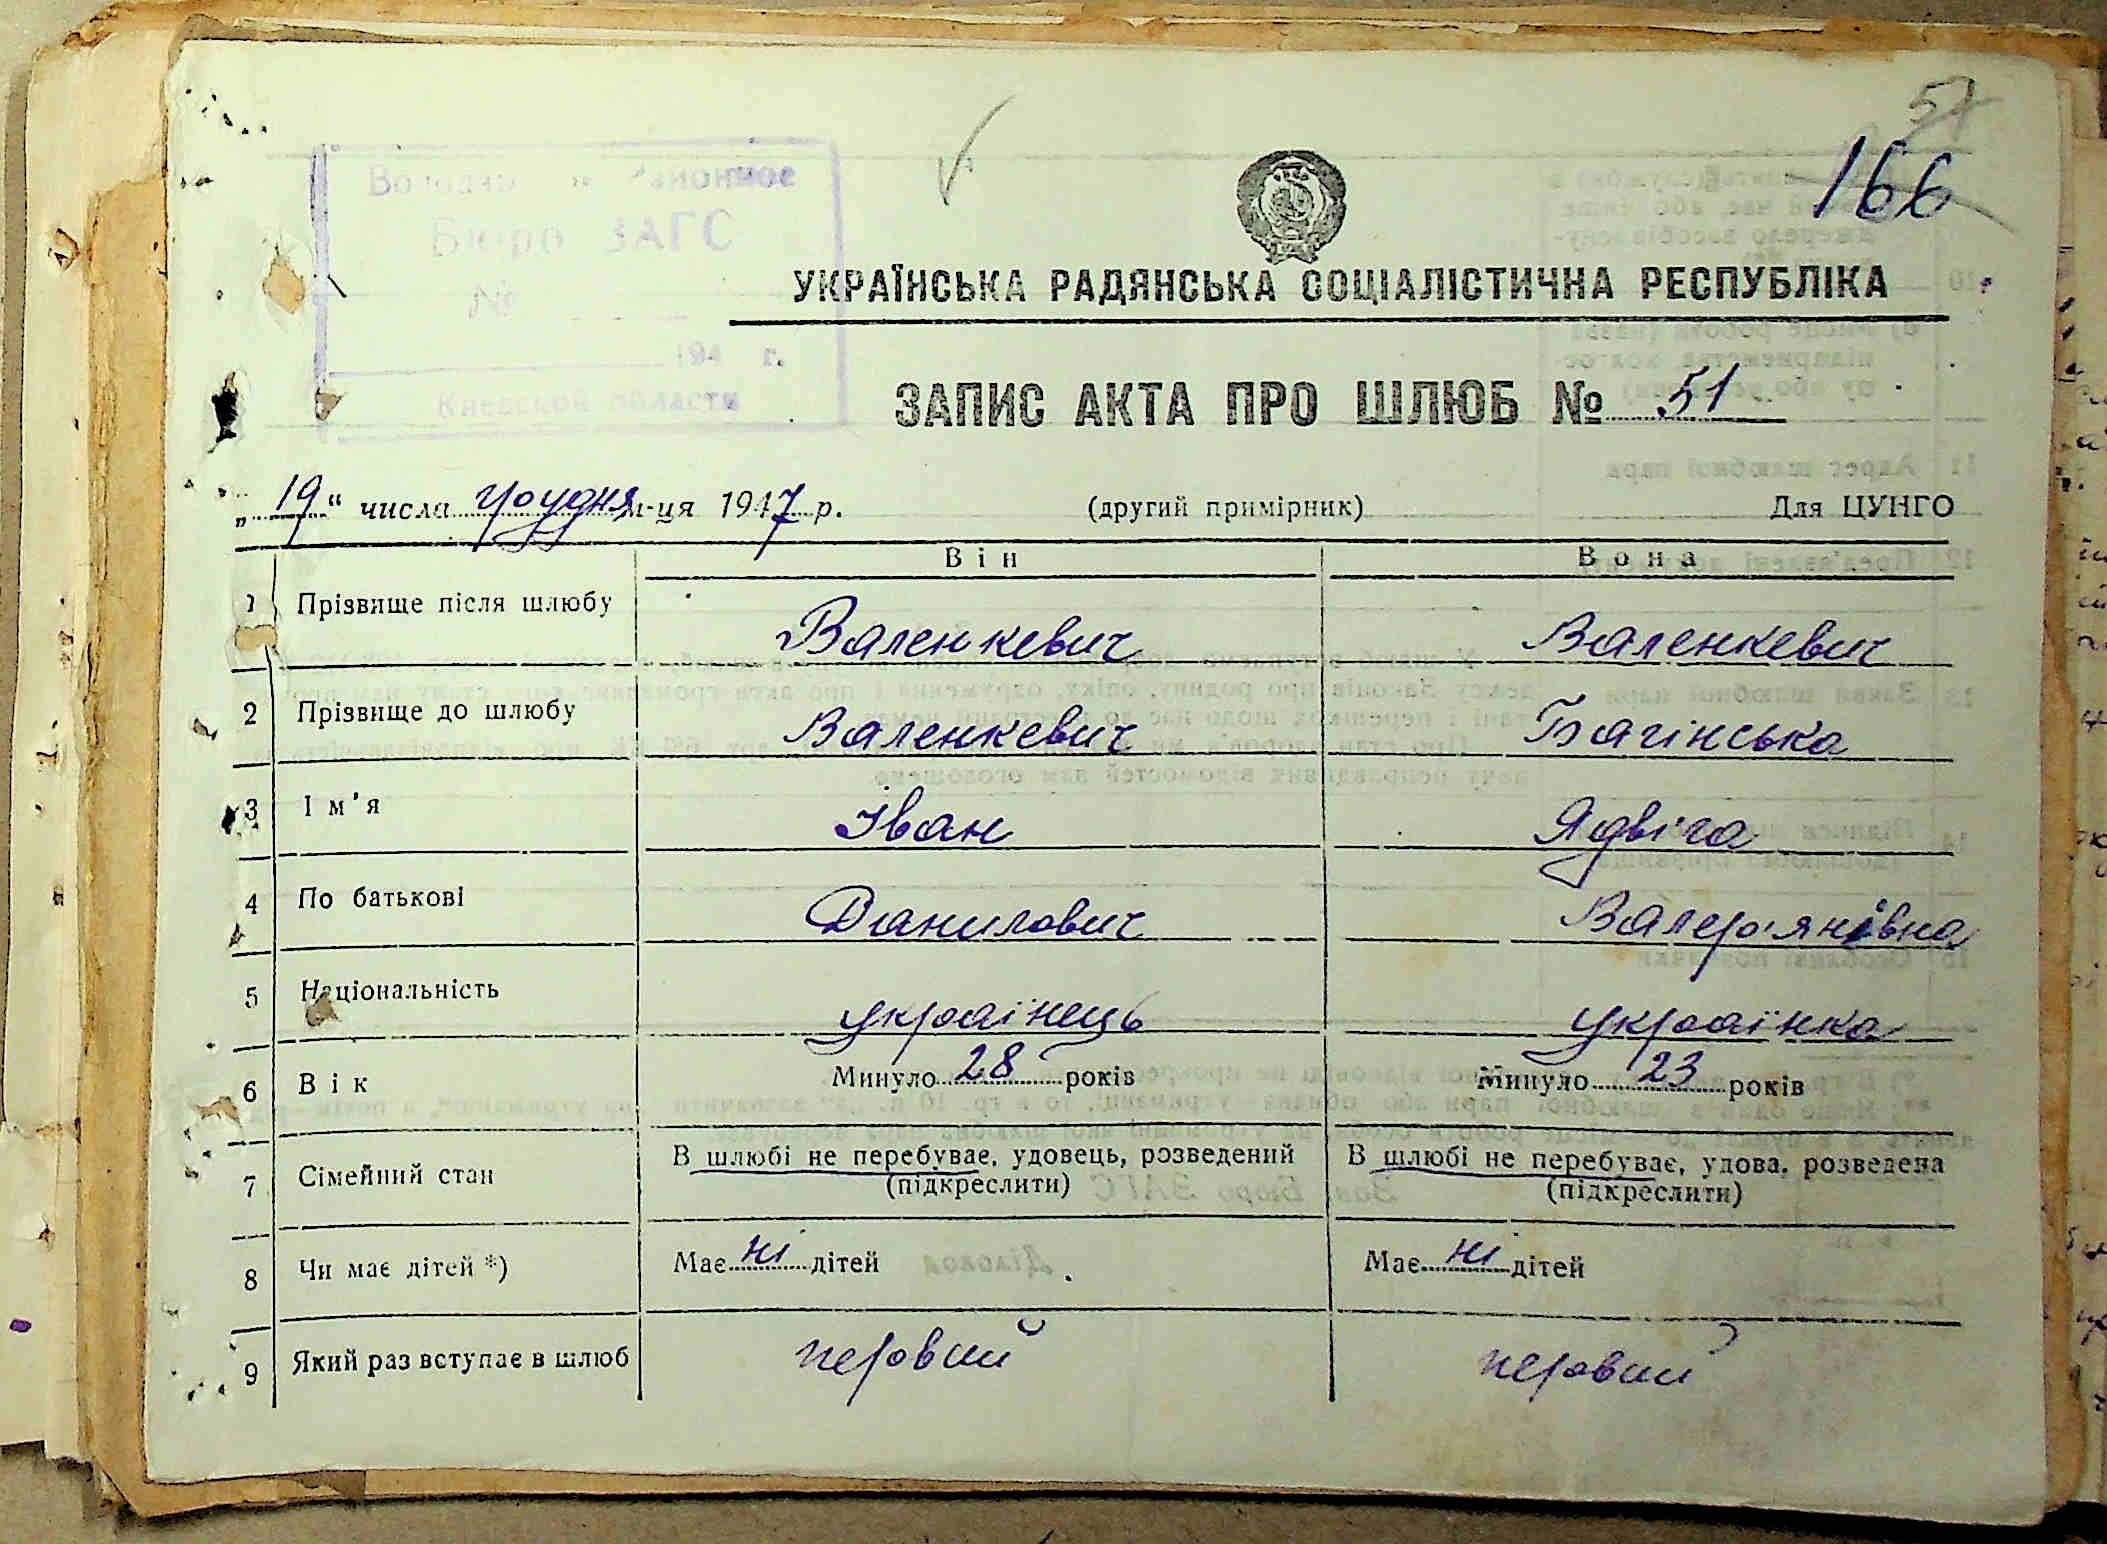 57
166
Бюро ЗАГС
№
194 г.
Киевской области
УКРАЇНСЬКА РАДЯНСЬКА СОЦІАЛІСТИЧНА РЕСПУБЛІКА
ЗАПИС АКТА ПРО ШЛЮБ № 51
„19“ числа грудня м-ця 1947 р. (другий примірник) Для ЦУНГО
Він Вона
1 Прізвище після шлюбу Валенкевич Валенкевич
2 Прізвище до шлюбу Валенкевич Багінська
3 Ім'я Іван Ядвіга
4 По батькові Данилович Валер'янівна
5 Національність українець українка
6 Вік Минуло 28 років Минуло 23 років
7 Сімейний стан В шлюбі не перебуває, удовець, розведений В шлюбі не перебуває, удова, розведена
(підкреслити) (підкреслити)
8 Чи має дітей *) Має ні дітей Має ні дітей
9 Який раз вступає в шлюб перовий перовий